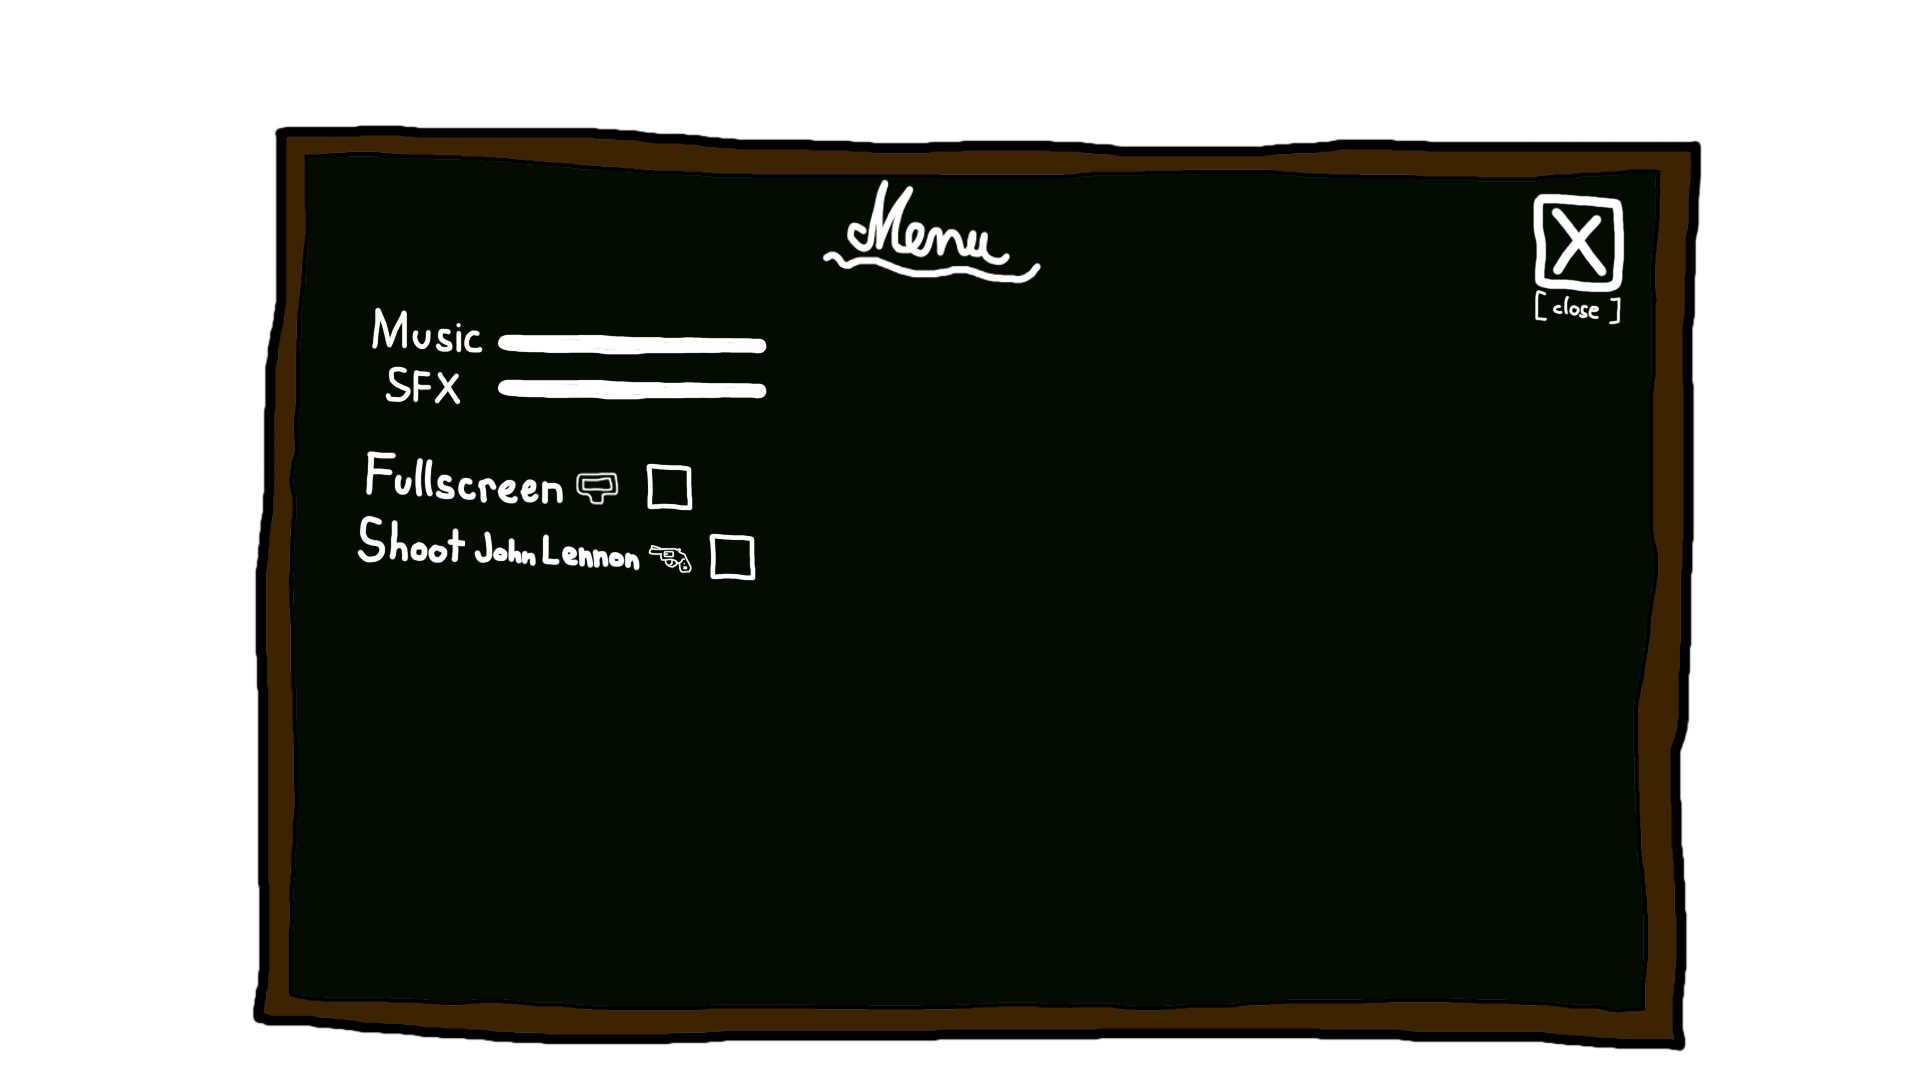 Menu
X
[ close ]
Music
SFX
Fullscreen
Shoot John Lennon